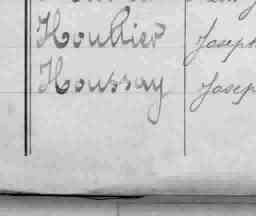 Houllier Joseph
Houssay Josep